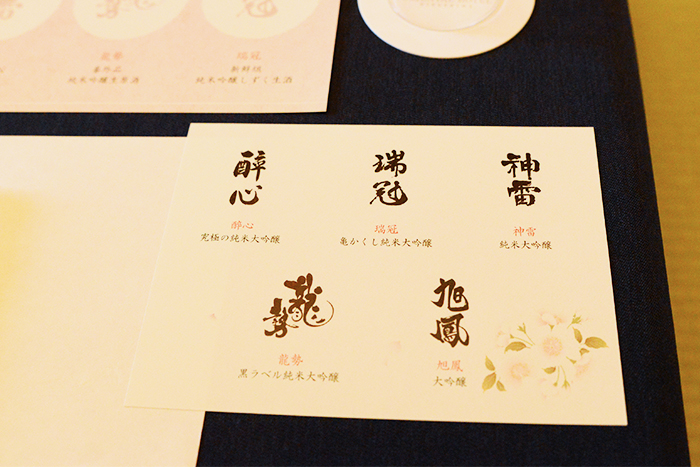 龍勢
番外品
純米吟醸生原酒
瑞冠
新鮮組
純米吟醸しずく生酒
酔心
瑞冠
神雷
酔心
究極の純米大吟醸
瑞冠
亀かくし純米大吟醸
神雷
純米大吟醸
龍勢
旭鳳
龍勢
黒ラベル純米大吟醸
旭鳳
大吟醸